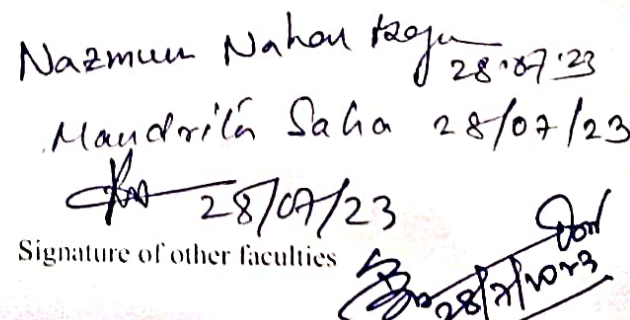 Nazmun Nahar 28.07.23
Mandrila Saha 28/07/23
28/07/23
Signature of other faculties
28/7/2023